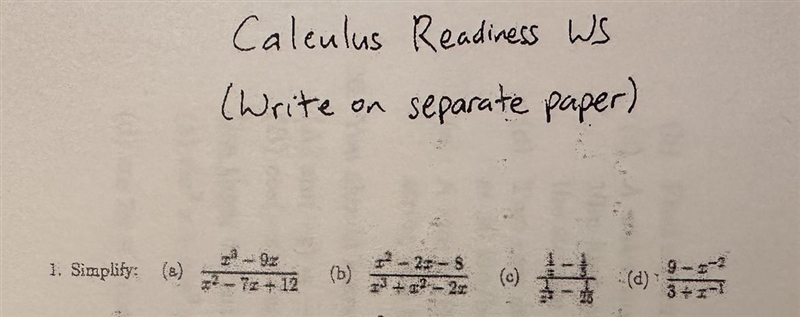 Calculus Readiness WS
(Write on separate paper)
1. Simplify: (a) (x³ − 9x)/(x² − 7x + 12) (b) (x² − 2x − 8)/(x³ + x² − 2x) (c) (1/x − 1/5)/(1/x² − 1/25) (d) (9 − x⁻²)/(3 + x⁻¹)